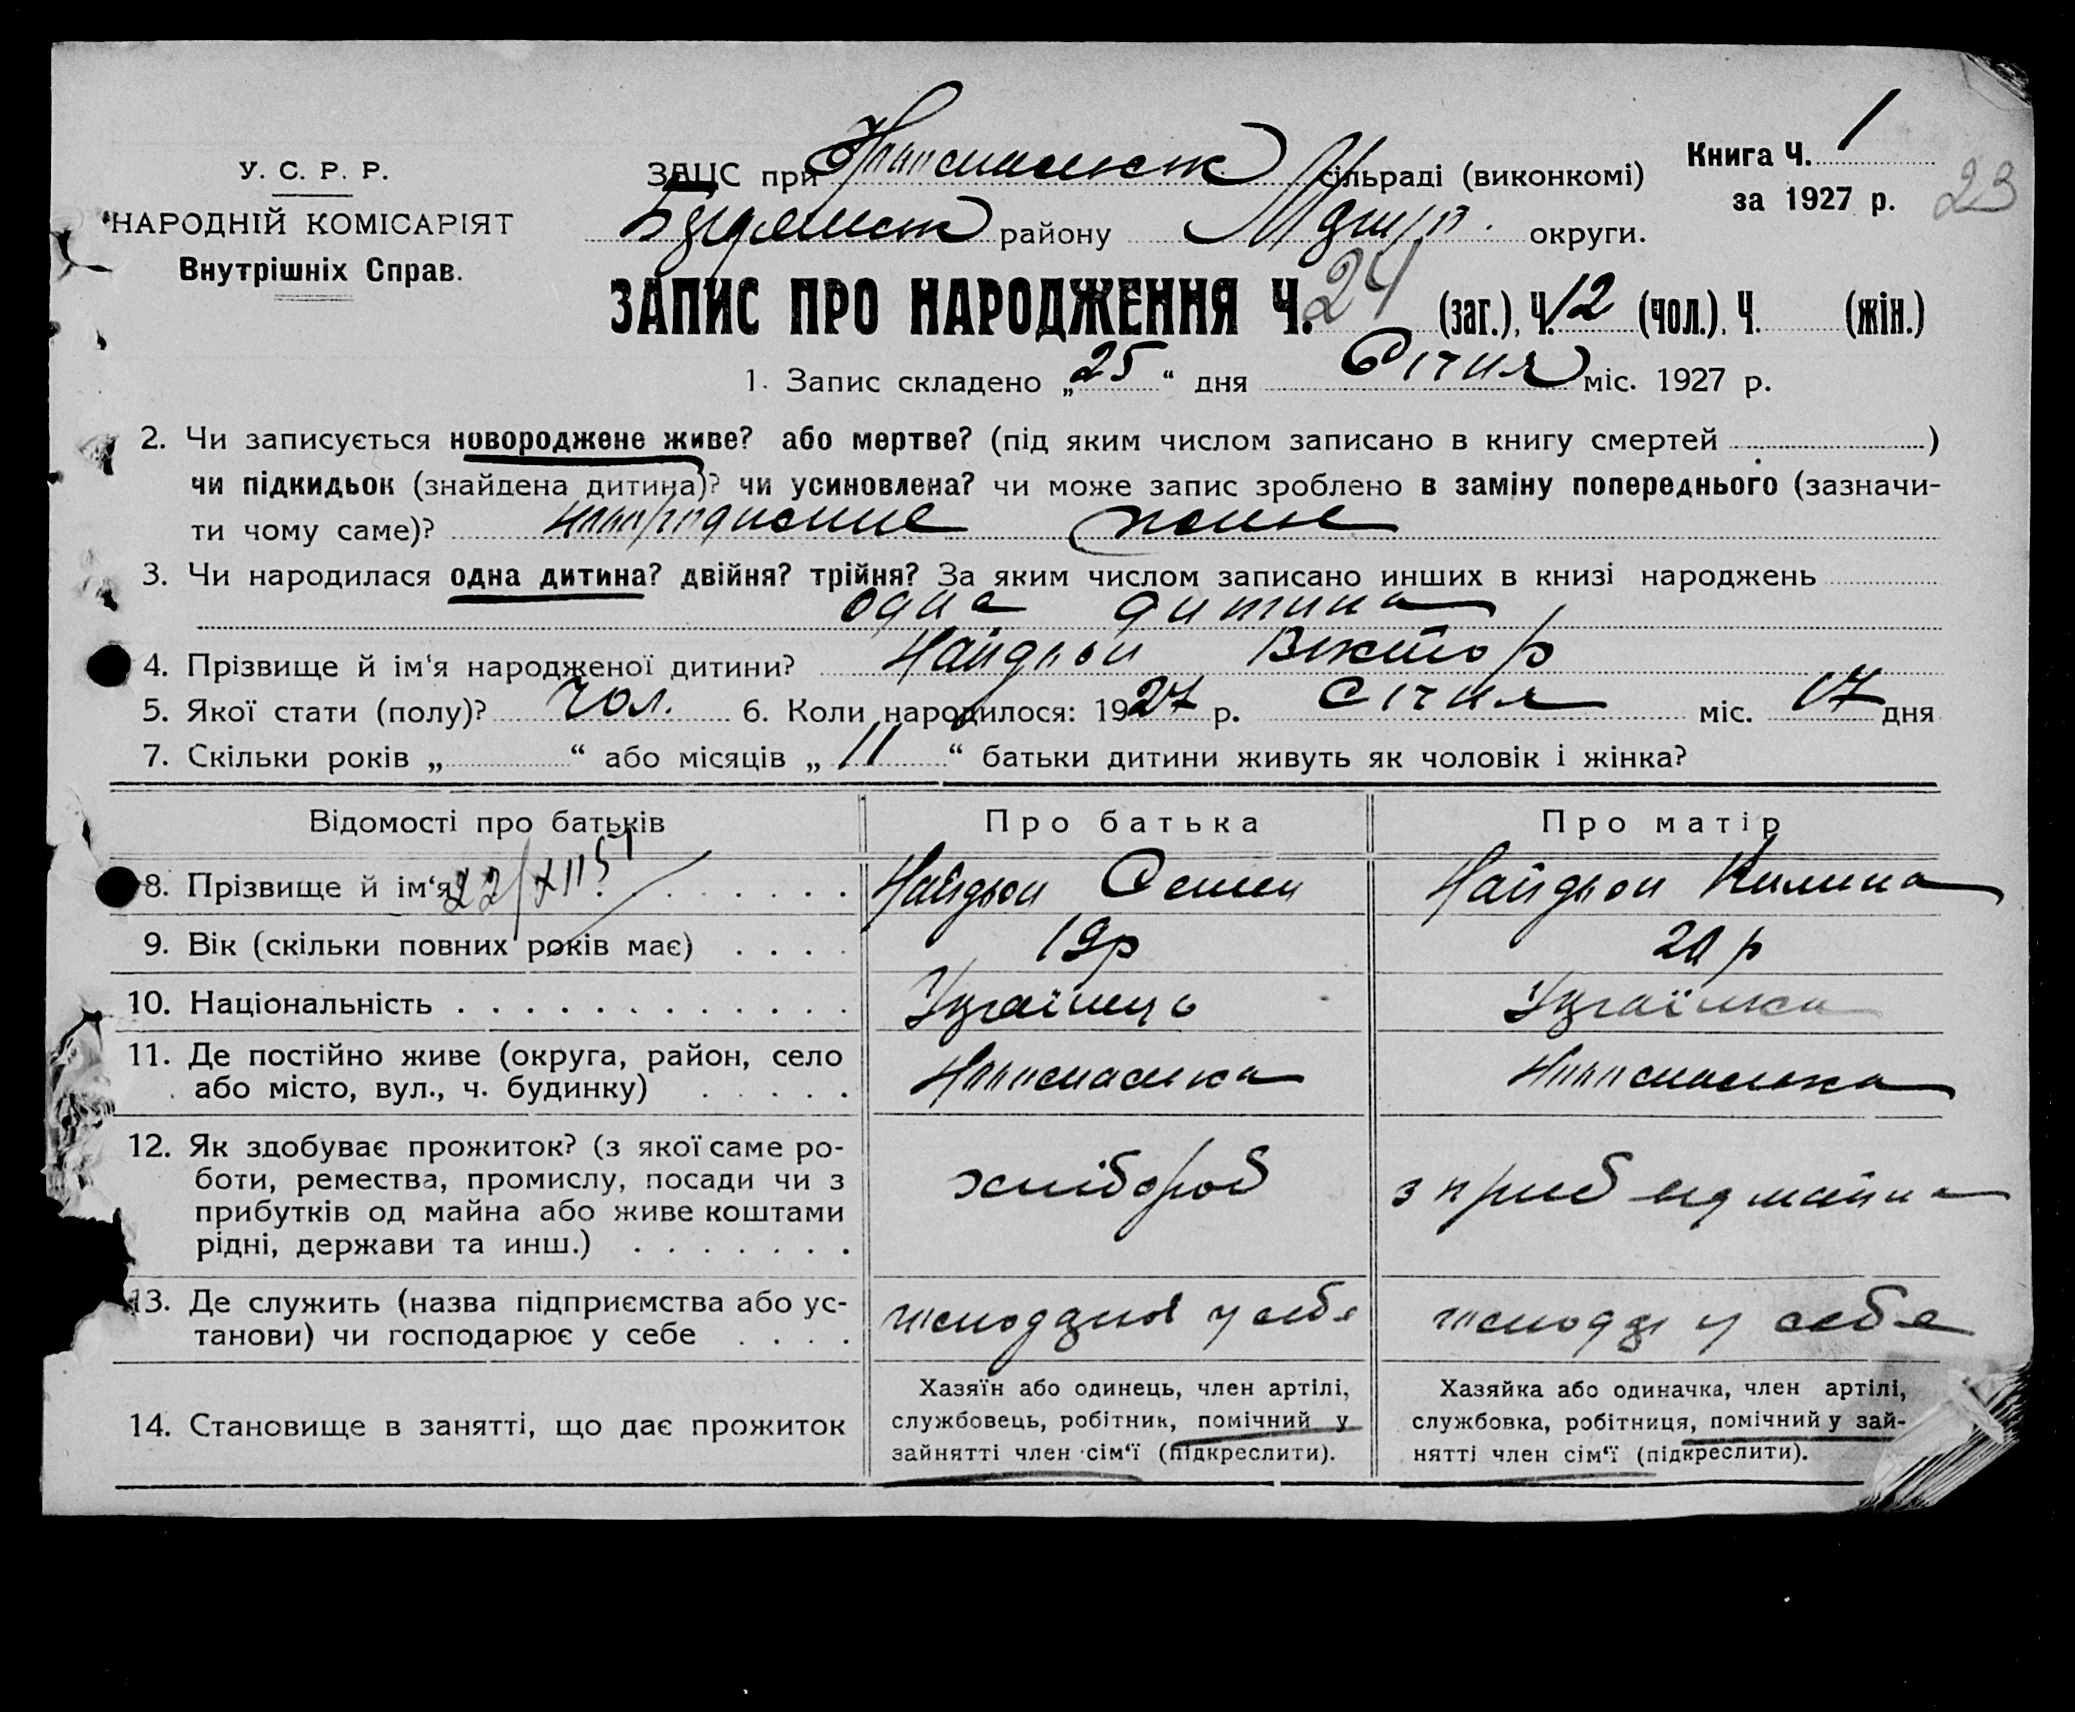 Книга Ч. 1
за 1927 р. 23
У. С. Р. Р.
НАРОДНІЙ КОМІСАРІЯТ
Внутрішніх Справ.
ЗАЦС при сільраді (виконкомі)
району округи.
ЗАПИС ПРО НАРОДЖЕННЯ Ч. 24 (заг.), Ч. 12 (чол.), Ч. (жін.)
1. Запис складено „25“ дня Січня міс. 1927 р.
2. Чи записується новороджене живе? або мертве? (під яким числом записано в книгу смертей )
чи підкидьок (знайдена дитина)? чи усиновлена? чи може запис зроблено в заміну попереднього (зазначи-
ти чому саме)? новороджене живе
3. Чи народилася одна дитина? двійня? трійня? За яким числом записано инших в книзі народжень
одна дитина
4. Прізвище й ім‘я народженої дитини? Найдьон Віктор
5. Якої стати (полу)? чол. 6. Коли народилося: 1927 р. Січня міс. 17 дня
7. Скільки років „ “ або місяців „11“ батьки дитини живуть як чоловік і жінка?
Відомості про батьків Про батька Про матір
8. Прізвище й ім‘я 22/XII 51 Найдьон Семен Найдьон Килина
9. Вік (скільки повних років має) 19р 20 р
10. Національність Українець Українка
11. Де постійно живе (округа, район, село
або місто, вул., ч. будинку)
12. Як здобуває прожиток? (з якої саме ро-
боти, ремества, промислу, посади чи з
прибутків од майна або живе коштами
рідні, держави та инш.) хлібороб з приб від майна
13. Де служить (назва підприємства або ус-
танови) чи господарює у себе у себе у себе
14. Становище в занятті, що дає прожиток
Хазяїн або одинець, член артілі,
службовець, робітник, помічний у
зайнятті член сім‘ї (підкреслити).
Хазяйка або одиначка, член артілі,
службовка, робітниця, помічний у зай-
нятті член сім‘ї (підкреслити).